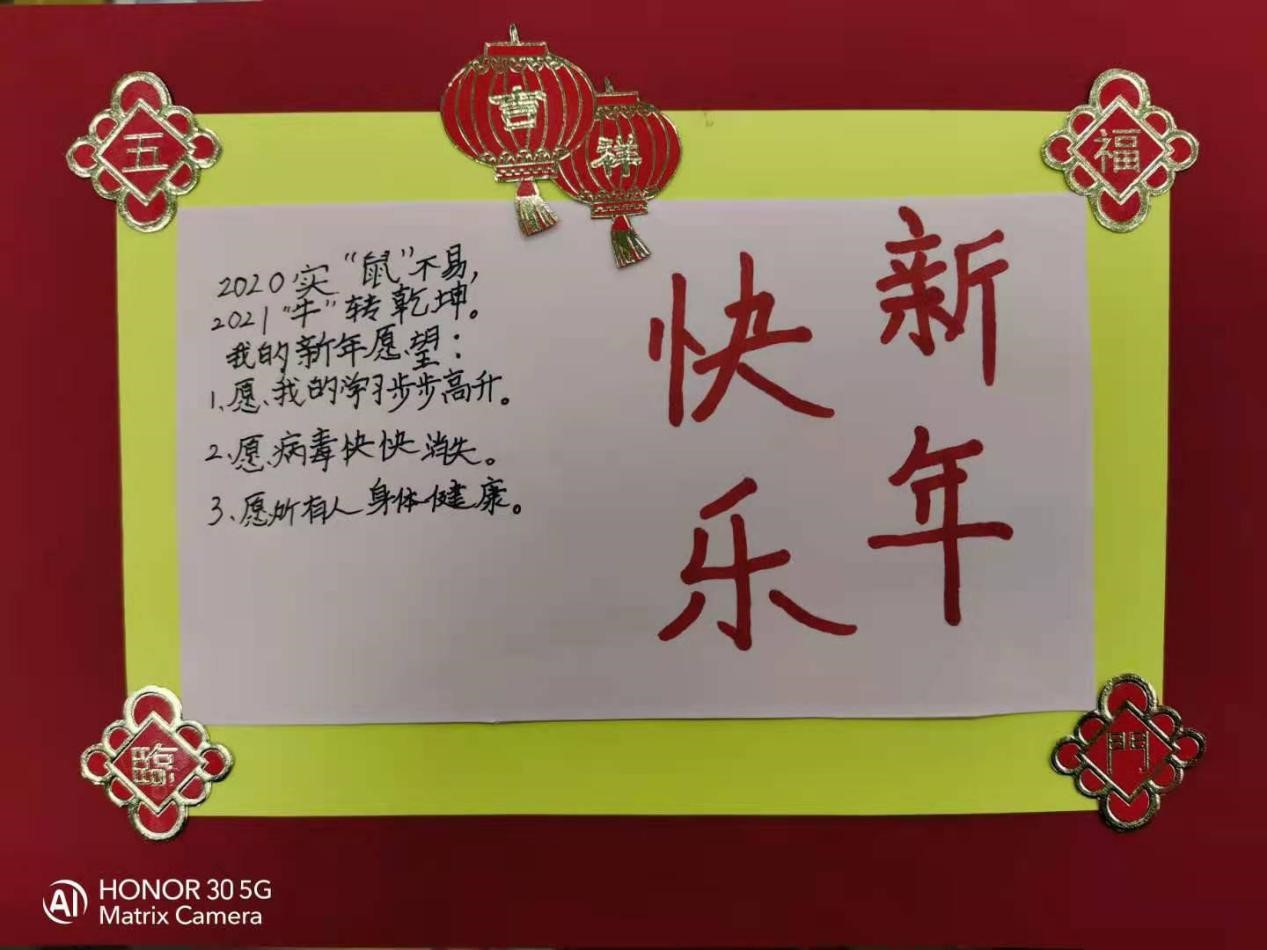 五
吉
祥
福
新年
快乐
2020实“鼠”不易,
2021“牛”转乾坤。
我的新年愿望：
1、愿我的学习步步高升。
2、愿病毒快快消失。
3、愿所有人身体健康。
臨
門
AI HONOR 30 5G
Matrix Camera